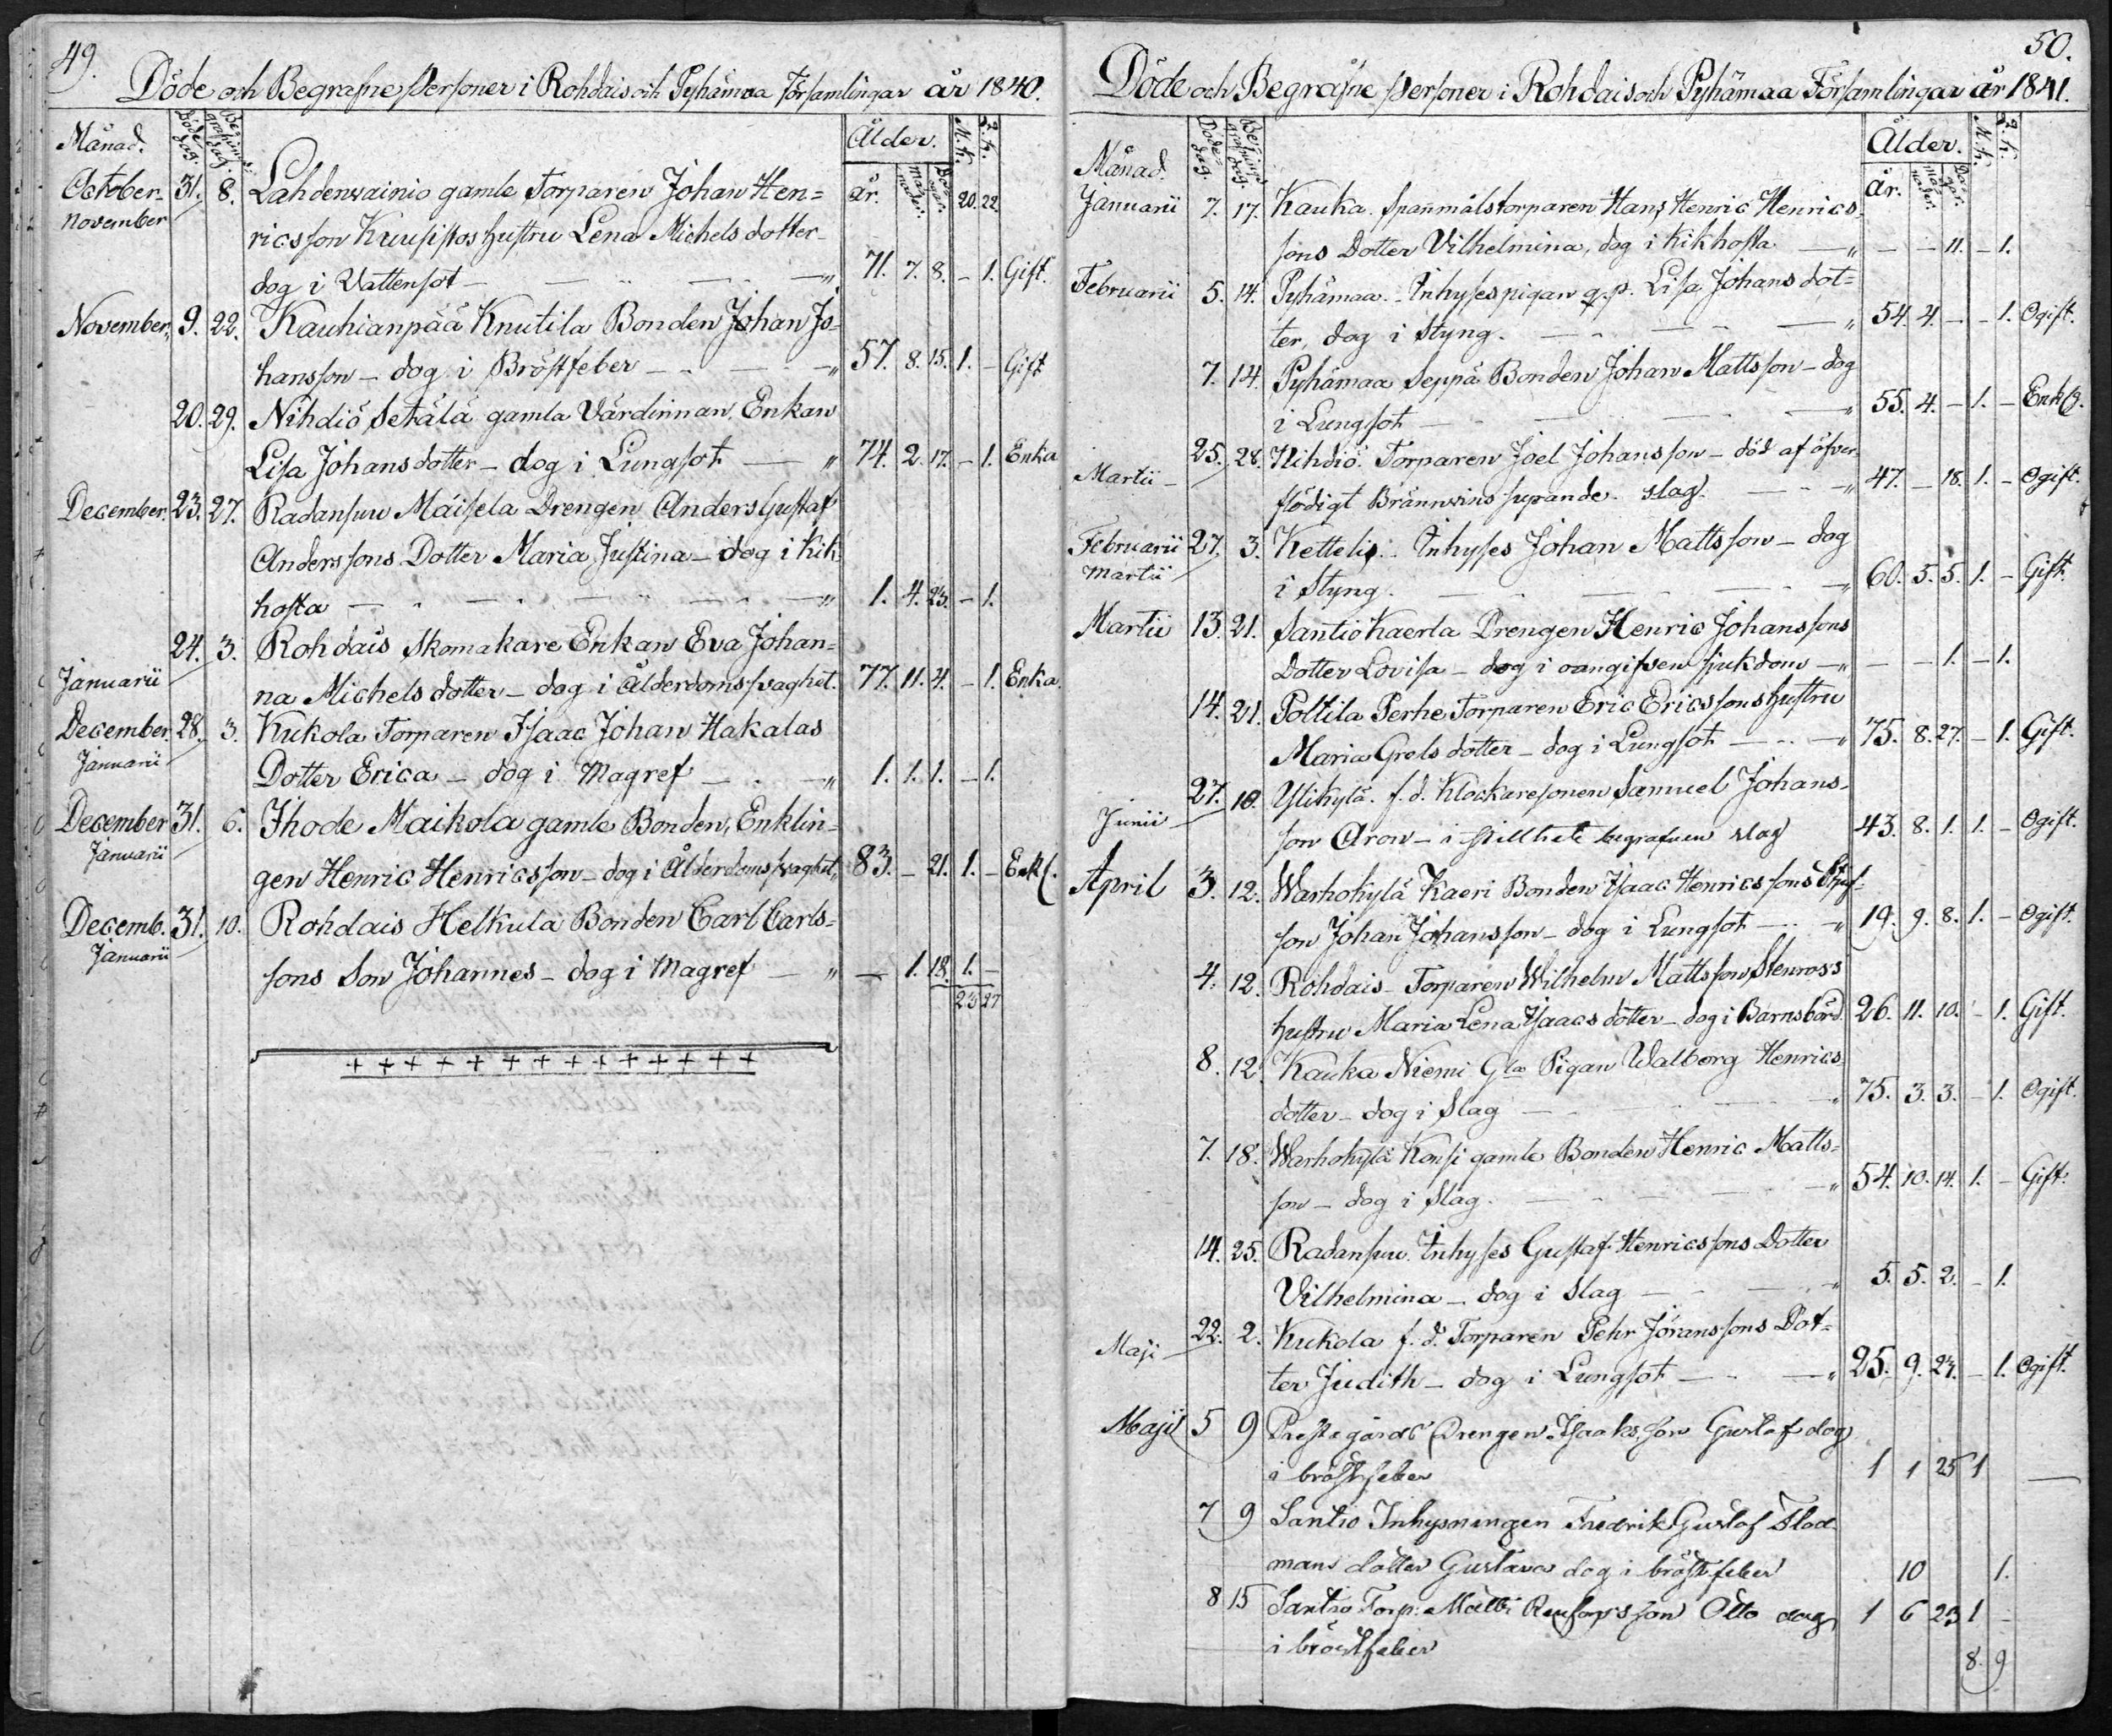 49.
Döde och Begrafne Personer i Rohdais och Pyhämaa Församlingar år 1840.
Månad. Döde dag. Begrafnings dag. Ålder. M.K. Q.K.
år. månader. dagar. 20. 22.
October 31. 8. Lahdenwainio gamle Torparen Johan Hen=
November ricsson Kuusistos hustru Lena Michels dotter
dog i Vattensot — 71. 7. 8. – 1. Gift.
November 9. 22. Kauhianpää Knutila Bonden Johan Jo=
hansson – dog i Bröstfeber — 57. 8. 15. 1. – Gift
20. 29. Nihdiö Setälä gamla Värdinnan, Enkan
Lisa Johansdotter – dog i Lungsot — 74. 2. 17. – 1. Enka
December. 23. 27. Radansuu Mäisela Drengen Anders Gustaf
Anderssons Dotter Maria Justina – dog i Kik
hosta — 1. 4. 23. – 1.
24. 3. Rohdais Skomakare Enkan Eva Johan=
Januarii na Michelsdotter – dog i Ålderdomssvaghet. 77. 11. 4. – 1. Enka.
December. 28. 3. Kukola Torparen Isaac Johan Hakalas
Januarii Dotter Erica – dog i Magref — 1. 1. 1. – 1.
December 31. 6. Ihode Maikola gamle Bonden, Enklin=
Januarii gen Henric Henricsson – dog i Ålderdomssvaghet, 83. – 21. 1. – Enkl.
Decemb. 31. 10. Rohdais Helkula Bonden Carl Carls=
Januarii sons Son Johannes – dog i Magref — – 1. 18. 1. –
23 27
+ + + + + + + + + + + + + +
50.
Döde och Begrafne Personer i Rohdais och Pyhämaa Församlingar år 1841.
Månad Döde dag. Begrafnings dag. Ålder. M.K. Q.K.
år. månader. dagar.
Januarii 7. 17. Kauka. Spanmålstorparen Hans Henric Henrics
sons Dotter Vilhelmina, dog i Kikhosta — – – 11. – 1.
Februarii 5. 14. Pyhämaa. Inhysespigan q.p. Lisa Johans dot=
ter, dog i Styng. — 54. 4. – – 1. Ogift.
7. 14. Pyhämaa Seppä Bonden Johan Mattsson – dog
i Lungsot — 55. 4. – 1. – Enkl.
25. 28. Nihdiö. Torparen Joel Johansson – död af öfver
Martii – flödigt Brännvins supande. slag. — 47. – 18. 1. – Ogift.
Februarii 27. 3. Ketteli. Inhyses Johan Mattsson – dog
Martii i Styng. — 60. 5. 5. 1. – Gift.
Martii 13. 21. Santiö Kaerla Drengen Henric Johanssons
Dotter Lovisa – dog i oangifven sjukdom — – – 1. – 1.
14. 21. Poltila Perhe Torparen Eric Ericssons hustru
Maria Grelsdotter – dog i Lungsot — 75. 8. 27. – 1. Gift.
27. 10. Ylikylä. f.d. Klockaresonen Samuel Johans=
Junii son Aron – i stillhet begrafven slag 43. 8. 1. 1. – Ogift.
April 3. 12. Warhokylä Kaeri Bonden Isaac Henricssons Styf=
son Johan Johansson – dog i Lungsot — 19. 9. 8. 1. – Ogift.
4. 12. Rohdais – Torparen Wilhelm Mattsson Stenross
hustru Maria Lena Isaacsdotter – dog i Barnsbörd. 26. 11. 10. – 1. Gift.
8. 12. Kauka Niemi Gla Pigan Walborg Henrics
dotter – dog i Slag — 75. 3. 3. – 1. Ogift.
7. 18. Warhokylä Kousi gamle Bonden Henric Matts=
son – dog i Slag. — 54. 10. 14. 1. – Gift.
14. 25. Radansuu. Inhyses Gustaf Henricssons Dotter
Vilhelmina – dog i Slag — 5. 5. 2. – 1.
22. 2. Kukola f.d. Torparen Pehr Jöranssons Dot=
Maji ter Judith – dog i Lungsot — 25. 9. 24. – 1. Ogift.
Maji 5 9 Prestegårds Drengen Isaaks son Gustaf dog
i bröstfeber 1 1 25 1 —
7 9 Santio Inhysningen Fredrik Gustaf Flod
mans dotter Gustava dog i bröstfeber 10 1.
8 15 Santio Torp. Matts son Otto dog 1 6 23 1 –
i bröstfeber
8. 9